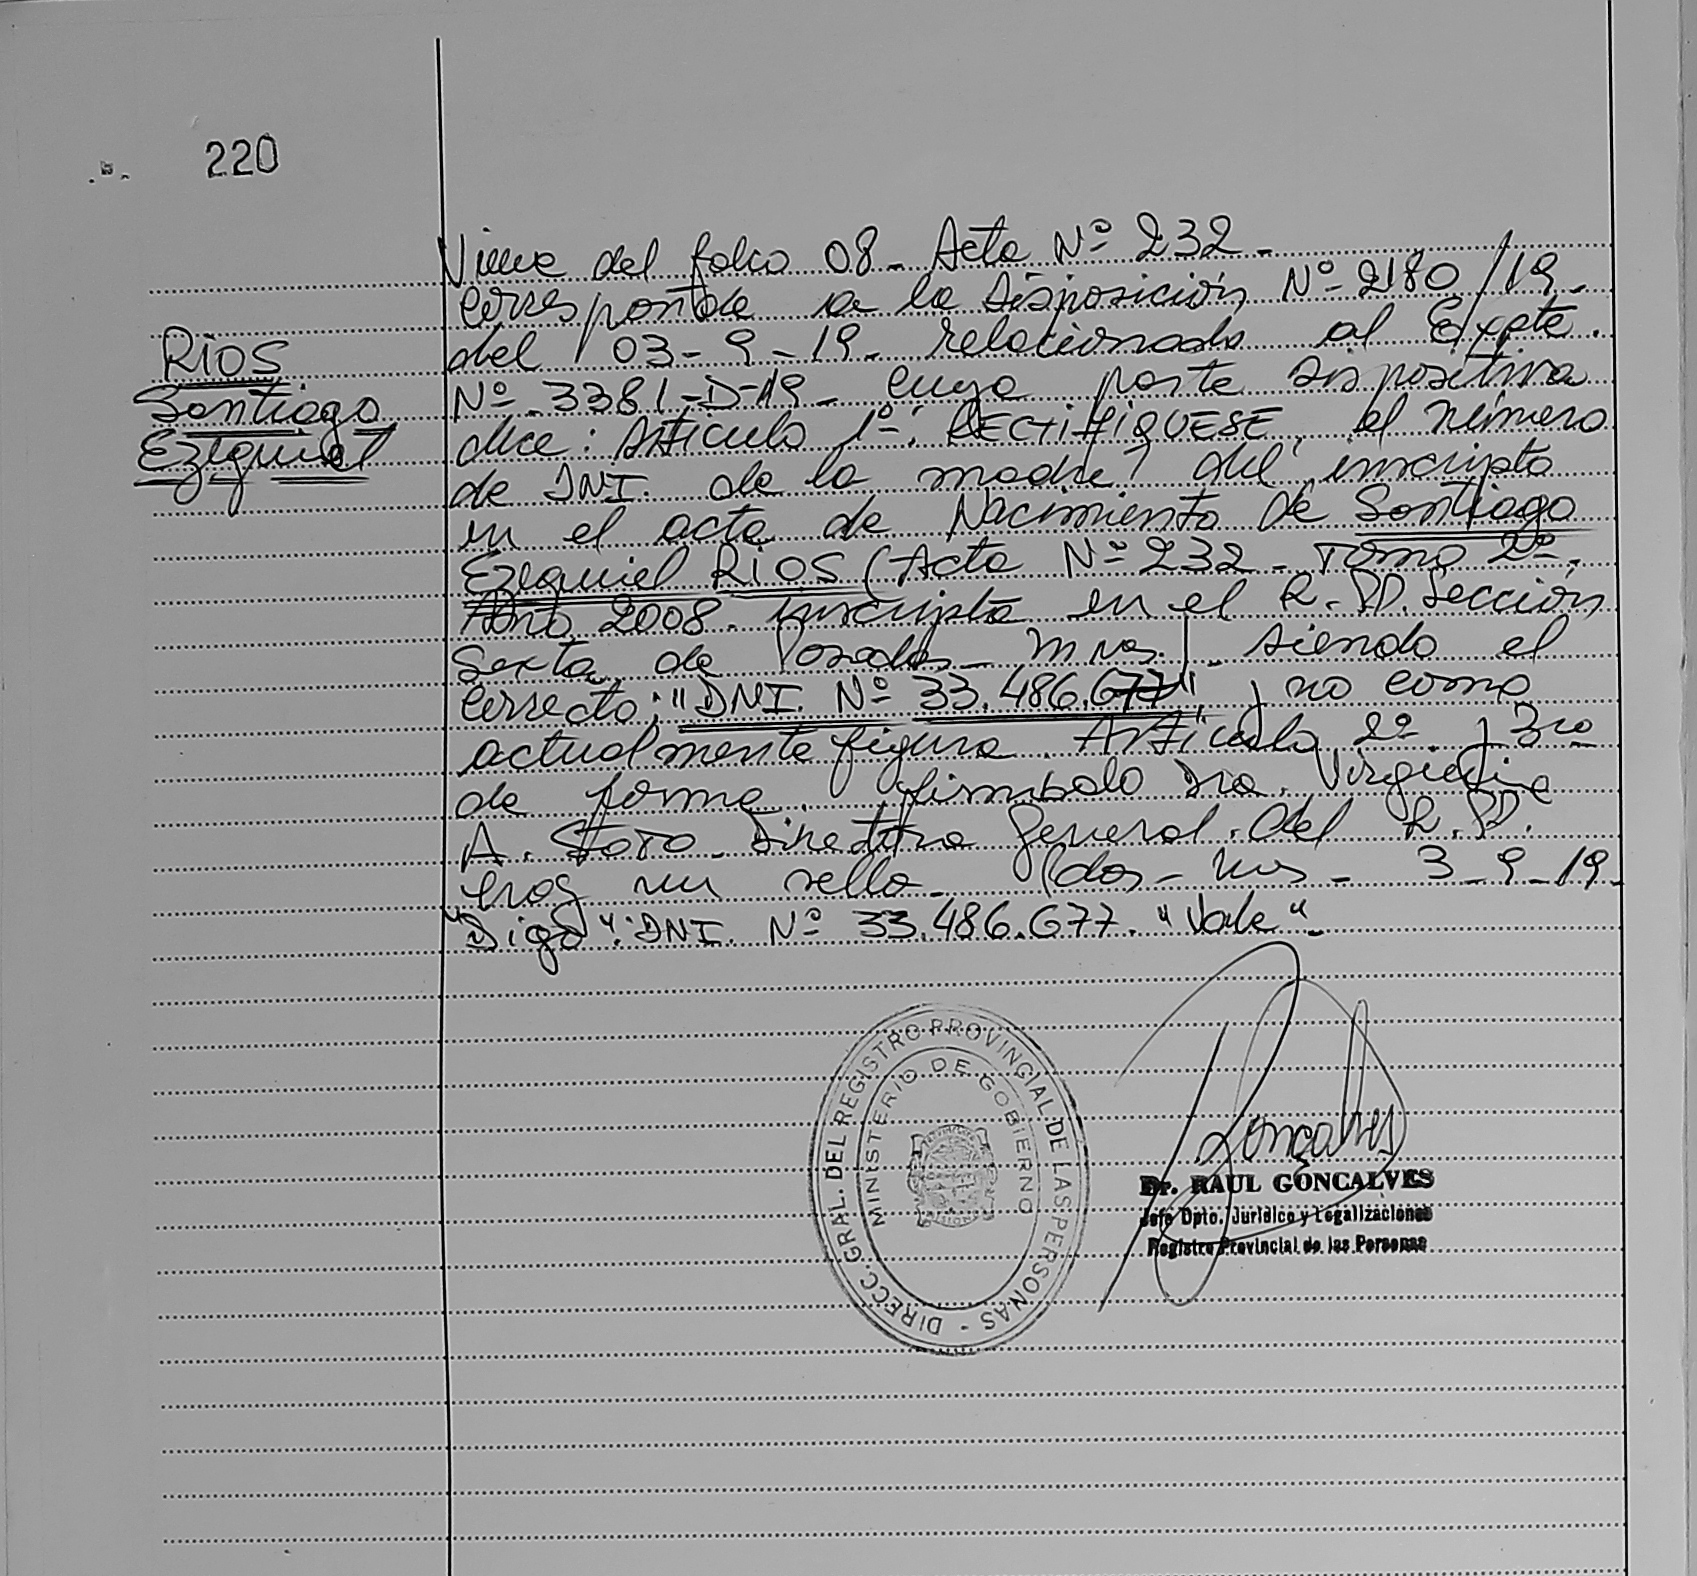 220
Viene del folio 08 - Acta Nº 232 -
Corresponde a la Disposición Nº 2180/19.
RIOS
del 03-9-19. relacionado al Expte.
Santiago
Nº 3381-D-19 - cuya parte dispositiva
Ezequiel
dice: Artículo 1º: RECTIFIQUESE, el número
de DNI. de la madre del inscripto
en el acta de Nacimiento de Santiago
Ezequiel RIOS (Acta Nº 232 - Tomo 2º.
Año 2008. inscripta en el R.PP. Sección
Sexta, de Posadas - Mnes.) - siendo el
correcto: "DNI. Nº 33.486.677" y no como
actualmente figura. Artículo 2º. y 3ro
de forma. Firmbdo Dra. Virginia
A. Storo - Directora General. del R.PP.
Hay un sello - Pdas - Mns - 3-9-19.
"Digo": DNI. Nº 33.486.677. "Vale" -
DIRECC. GRAL. DEL REGISTRO PROVINCIAL DE LAS PERSONAS -
MINISTERIO DE GOBIERNO
Goncalves
Dr. RAUL GONCALVES
Jefe Dpto. Jurídico y Legalizaciones
Registro Provincial de las Personas